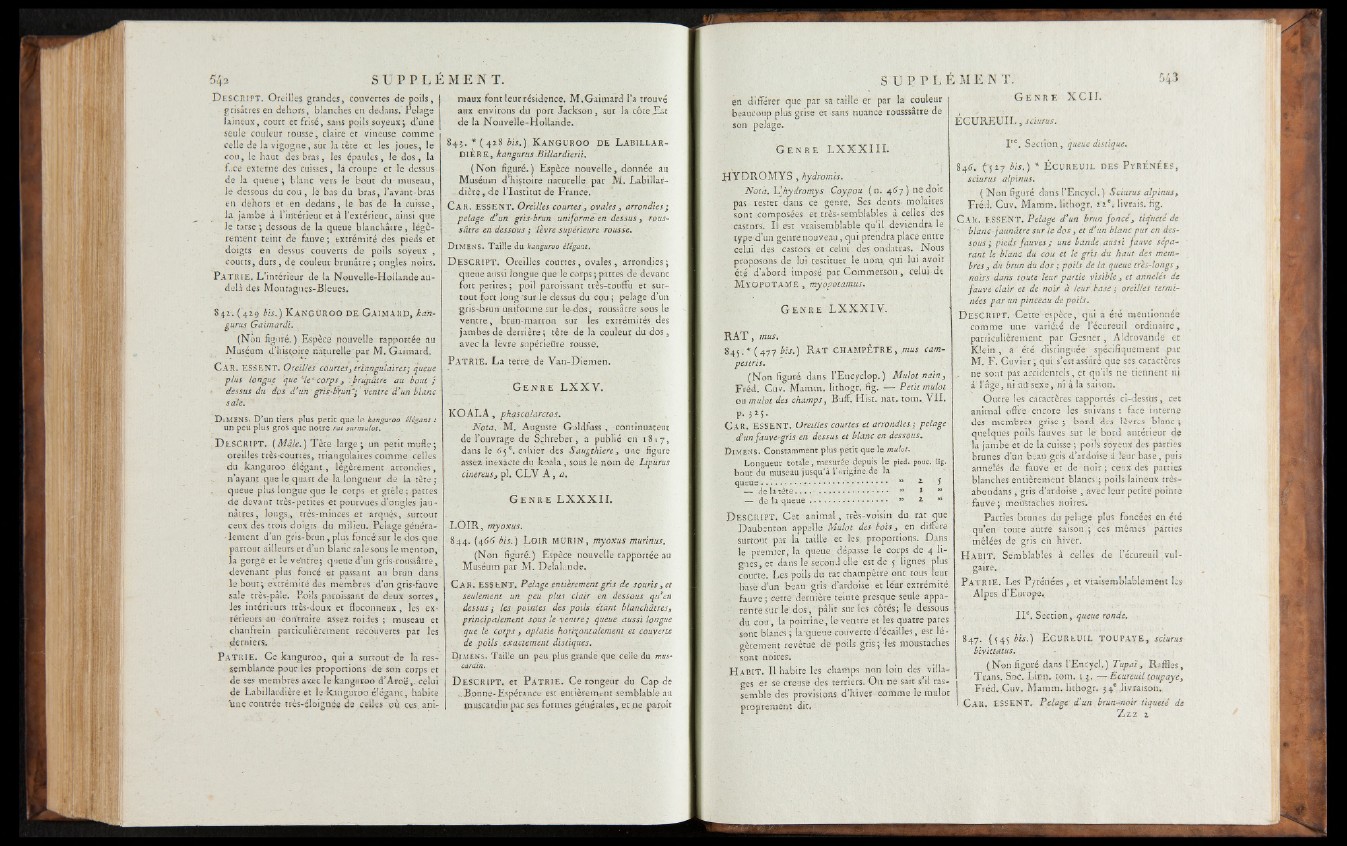 542
SUPPLÉMENT.
DESCRIPT. Oreilles grandes, couvertes de poils,
grisâtres en dehors, blanches en dedans. Pelage
laineux, court et frisé, sans poils soyeux; d'une
seule couleur rousse, claire et vineuse comme
celle de la vigogne, sur la tête et les joues, le
cou, le haut des bras, les épaules, le dos, la
face externe des cuisses, la croupe et le dessus
de la queue; blanc vers le bout du museau,
le dessous du cou, le bas du bras, l'avant-bras
en dehors et en dedans, le bas de la cuisse,
la jambe à l'intérieur et à l'extérieur, ainsi que
le tarse; dessous de la queue blanchâtre, légè-
rement teint de fauve; extrémité des pieds et
doigts en dessus couverts de poils soyeux,
courts, durs, de couleur brunâtre; ongles noirs.
PATRIE. L'intérieur de la Nouvelle-Hollande au-
delà des Montagnes-Bleues.
842. (429 bis.) KANGUROO DE GAIMARD, kan-
gurus Gaimardi.
(Non figuré.) Espèce nouvelle rapportée au
Muséum d'histoire naturelle par M. Gaimard.
CAR. ESSENT. Oreilles courtes, triangulaires; queue
plus longue que le corps, brunâtre au bout;
dessus du dos d'un gris-brun; ventre d'un blanc
sale.
DIMENS. D'un tiers plus petit que le kanguroo élégant:
un peu plus gros que notre rat surmulot.
DESCRIPT. (Mâle.) Tête large; un petit mufle;
oreilles très-courtes, triangulaires comme celles
du kanguroo élégant, légèrement arrondies,
n'ayant que le quart de la longueur de la tête;
queue plus longue que le corps et grêle; pattes
de devant très-petites et pourvues d'ongles jau-
nâtres, longs, très-minces et arqués, surtout
ceux des trois doigts du milieu. Pelage généra-
lement d'un gris-brun, plus foncé sur le dos que
partout ailleurs et d'un blanc sale sous le menton,
la gorge et le ventre; queue d'un gris-roussâtre,
devenant plus foncé et passant au brun dans
le bout; extrémité des membres d'un gris-fauve
sale très-pâle. Poils paroissant de deux sortes,
les intérieurs très-doux et floconneux, les ex-
térieurs au contraire assez roides; museau et
chanfrein particulièrement recouverts par les
derniers.
PATRIE. Ce kanguroo, qui a surtout de la res-
semblance pour les proportions de son corps et
de ses membres avec le kanguroo d'Aroë, celui
de Labillardière et le kanguroo élégant, habite
une contrée très-éloignée de celles où ces ani-
maux font leur résidence. M. Gaimard l'a trouvé
aux environs du port Jackson, sur la côte Est
de la Nouvelle-Hollande.
843. * (428 bis.) KANGUROO DE LABILLAR-
DIÈRE, kangurus Billardierii.
(Non figuré.) Espèce nouvelle, donnée au
Muséum d'histoire naturelle par M. Labillar-
dière, de l'Institut de France.
CAR. ESSENT. Oreilles courtes, ovales, arrondies;
pelage d'un gris-brun uniforme en dessus, rous-
sâtre en dessous; lèvre supérieure rousse.
DIMENS. Taille du kanguroo élégant.
DESCRIPT. Oreilles courtes, ovales, arrondies;
queue aussi longue que le corps; pattes de devant
fort petites; poil paroissant très-touffu et sur-
tout fort long sur le dessus du cou; pelage d'un
gris-brun uniforme sur le dos, roussâtre sous le
ventre, brun-marron sur les extrémités des
jambes de derrière; tête de la couleur du dos,
avec la lèvre supérieure rousse.
PATRIE. La terre de Van-Diemen.
GENRE LXXV.
KOALA, phascolarctos.
Nota. M. Auguste Goldfass, continuateur
de l'ouvrage de Schreber, a publié en 1817,
dans le 65e. cahier des Saugthiere, une figure
assez inexacte du koala, sous le nom de Lipurus
cinereus, pl. CLV A, a.
GENRE LXXXII.
LOIR, myoxus.
844. (466 bis.) LOIR MURIN, myoxus murinus.
(Non figuré.) Espèce nouvelle rapportée au
Muséum par M. Delalande.
CAR. ESSENT. Pelage entièrement gris de souris, et
seulement un peu plus clair en dessous qu'en
dessus; les pointes des poils étant blanchâtres,
principalement sous le ventre; queue aussi longue
que le corps, aplatie horizontalement et couverte
de poils exactement distiques.
DIMENS. Taille un peu plus grande que celle du mus-
cardin.
DESCRIPT. et PATRIE. Ce rongeur du Cap de
Bonne-Espérance est entièrement semblable au
muscardin par ses formes générales, et ne paroît
SUPPLÉMENT.
543
en différer que par sa taille et par la couleur
beaucoup plus grise et sans nuance rousssâtre de
son pelage.
GENRE LXXXIII.
HYDROMYS, hydromis.
Nota. L'hydromys Coypou (n. 467) ne doit
pas rester dans ce genre. Ses dents molaires
sont composées et très-semblables à celles des
castors. Il est vraisemblable qu'il deviendra le
type d'un genre nouveau, qui prendra place entre
celui des castors et celui des ondatras. Nous
proposons de lui restituer le nom qui lui avoit
été d'abord imposé par Commerson, celui de
MYOPOTAME, myopotamus.
GENRE LXXXIV.
RAT, mus.
845. * (477 bis.) RAT CHAMPÊTRE, mus cam-
pestris.
(Non figuré dans l'Encyclop.) Mulot nain,
Fréd. Cuv. Mamm. lithogr. fig. — Petit mulot
ou mulot des champs, Buff. Hist. nat. tom. VII.
p. 325.
CAR. ESSENT. Oreilles courtes et arrondies; pelage
d'un fauve-gris en dessus et blanc en dessous.
DIMENS. Constamment plus petit que le mulot.
Longueur totale, mesurée depuis le pied. pouc. lig.
bout du museau jusqu'à l'origine de la
queue . . . . . . . . . . » 2 5
— de la tête . . . . . . . . » 1 »
— de la queue . . . . . . . . » 2 »
DESCRIPT. Cet animal, très-voisin du rat que
Daubenton appelle Mulot des bois, en diffère
surtout par la taille et les proportions. Dans
le premier, la queue dépasse le corps de 4 li-
gnes, et dans le second elle est de 5 lignes plus
courte. Les poils du rat champêtre ont tous leur
base d'un beau gris d'ardoise et leur extrémité
fauve; cette dernière teinte presque seule appa-
rente sur le dos, pâlit sur les côtés; le dessous
du cou, la poitrine, le ventre et les quatre pattes
sont blancs; la queue couverte d'écailles, est lé-
gèrement revêtue de poils gris; les moustaches
sont noires.
HABIT. Il habite les champs non loin des villa-
ges et se creuse des terriers. On ne sait s'il ras-
semble des provisions d'hiver comme le mulot
proprement dit.
GENRE XCII.
ÉCUREUIL, sciurus.
Ire. Section, queue distique.
846. (527 bis.) * ÉCUREUIL DES PYRÉNÉES,
sciurus alpinus.
(Non figuré dans l'Encycl.) Sciurus alpinus,
Fréd. Cuv. Mamm. lithogr. 22e. livrais. fig.
CAR. ESSENT. Pelage d'un brun foncé, tiqueté de
blanc jaunâtre sur le dos, et d'un blanc pur en des-
sous; pieds fauves; une bande aussi fauve sépa-
rant le blanc du cou et le gris du haut des mem-
bres, du brun du dos; poils de la queue très-longs,
noirs dans toute leur partie visible, et annelés de
fauve clair et de noir à leur base; oreilles termi-
nées par un pinceau de poils.
DESCRIPT. Cette espèce, qui a été mentionnée
comme une variété de l'écureuil ordinaire,
particulièrement par Gesner, Aldrovande et
Klein, a été distinguée spécifiquement par
M. F. Cuvier; qui s'est assuré que ses caractères
ne sont pas accidentels, et qu'ils ne tiennent ni
à l'âge, ni au sexe, ni à la saison.
Outre les caractères rapportés ci-dessus, cet
animal offre encore les suivans : face interne
des membres grise; bord des lèvres blanc;
quelques poils fauves sur le bord antérieur de
la jambe et de la cuisse; poils soyeux des parties
brunes d'un beau gris d'ardoise à leur base, puis
annelés de fauve et de noir; ceux des parties
blanches entièrement blancs; poils laineux très-
abondans, gris d'ardoise, avec leur petite pointe
fauve; moustaches noires.
Parties brunes du pelage plus foncées en été
qu'en toute autre saison; ces mêmes parties
mêlées de gris en hiver.
HABIT. Semblables à celles de l'écureuil vul-
gaire.
PATRIE. Les Pyrénées, et vraisemblablement les
Alpes d'Europe.
IIe. Section, queue ronde.
847. (545 bis.) ECUREUIL TOUPAYE, sciurus
bivittatus.
(Non figuré dans l'Encycl.) Tupai, Raffles,
Trans. Soc. Linn. tom. 13. — Ecureuil toupaye,
Fréd. Cuv. Mamm. lithogr. 34e livraison.
CAR. ESSENT. Pelage d'un brun-noir tiqueté de
Zzz 2